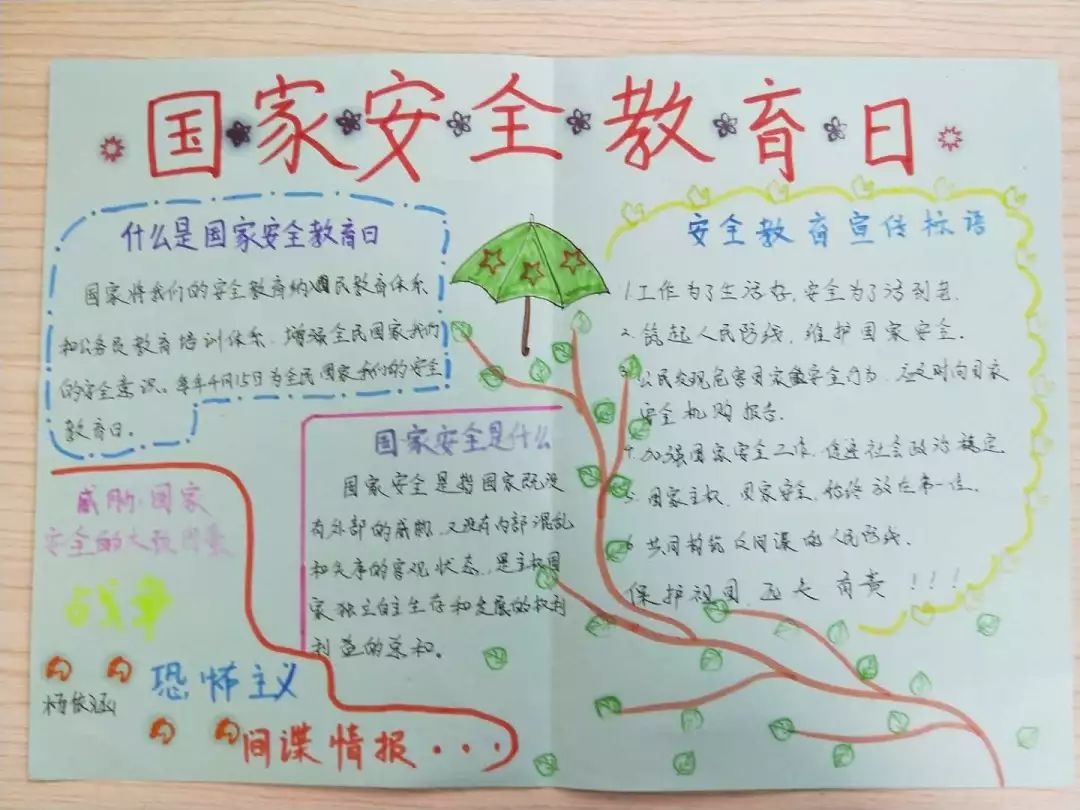 国家安全教育日
什么是国家安全教育日
国家将我们的安全教育纳入国民教育体系
和公务员教育培训体系，增强全民国家我们
的安全意识。每年4月15日为全民国家我们的安全
教育日。
国家安全是什么
国家安全是指国家既没
有外部的威胁，又没有内部混乱
和失序的客观状态，是主权国
家独立自主生存和发展的权利
利益的总和。
威胁国家
安全的大致因素
战争
恐怖主义
间谍情报...
杨依涵
安全教育宣传标语
1.工作为了生活好，安全为了活到老.
2.筑起人民防线，维护国家安全.
3.公民发现危害国家安全行为，应及时向国家
安全机构报告.
4.加强国家安全工作，促进社会政治稳定
5.国家主权，国家安全，始终放在第一位.
6.共同构筑反间谍的人民防线.
保护祖国，匹夫有责!!!